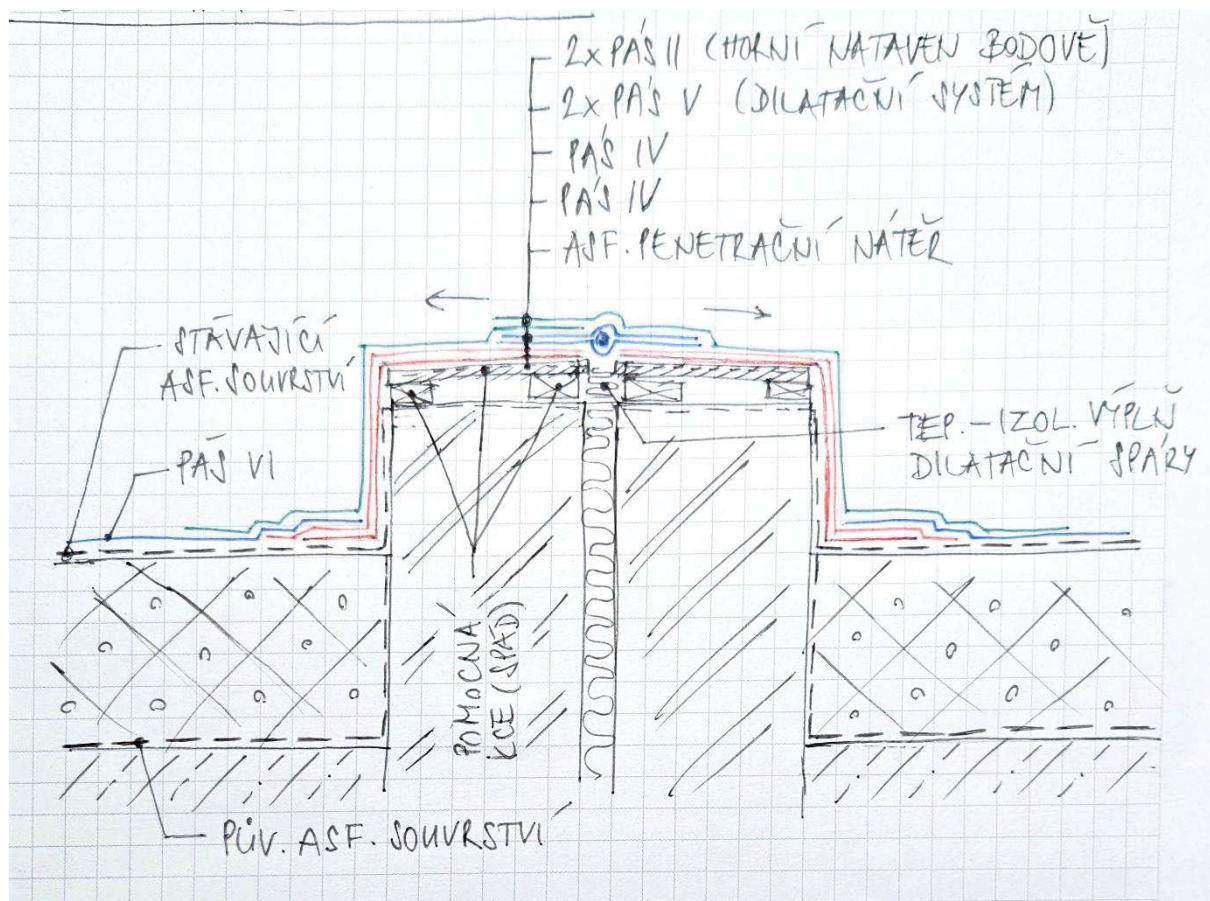 2x PÁS II (HORNÍ NATAVEN BODOVĚ)
2x PÁS V (DILATAČNÍ SYSTÉM)
PÁS IV
PÁS IV
ASF. PENETRAČNÍ NÁTĚR
STÁVAJÍCÍ
ASF. SOUVRSTVÍ
PÁS VI
TEP.-IZOL. VÝPLŇ
DILATAČNÍ SPÁRY
POMOCNÁ
KCE (SPÁD)
PŮV. ASF. SOUVRSTVÍ